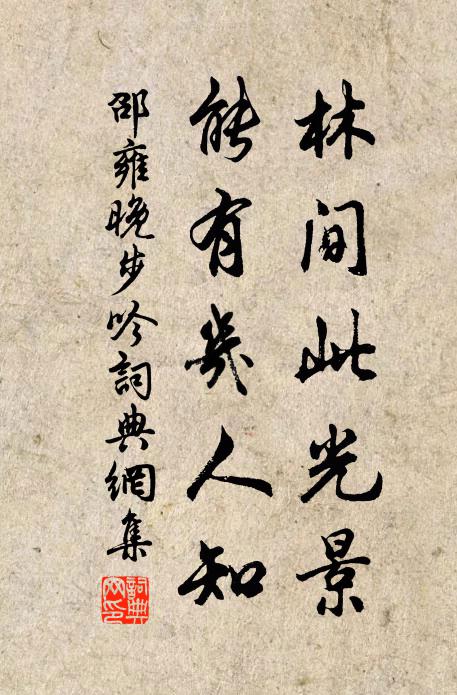 林間此光景
能有幾人知
邵雍晚步吟詞典網集
詞典網印